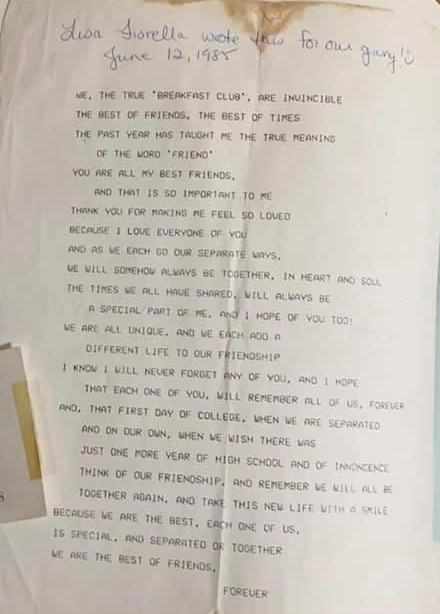 Lisa Fiorella wrote this for our gang!
June 12, 1985
WE, THE TRUE 'BREAKFAST CLUB', ARE INVINCIBLE
THE BEST OF FRIENDS, THE BEST OF TIMES
THE PAST YEAR HAS TAUGHT ME THE TRUE MEANING
OF THE WORD 'FRIEND'
YOU ARE ALL MY BEST FRIENDS,
AND THAT IS SO IMPORTANT TO ME
THANK YOU FOR MAKING ME FEEL SO LOVED
BECAUSE I LOVE EVERYONE OF YOU
AND AS WE EACH GO OUR SEPARATE WAYS,
WE WILL SOMEHOW ALWAYS BE TOGETHER, IN HEART AND SOUL
THE TIMES WE ALL HAVE SHARED, WILL ALWAYS BE
A SPECIAL PART OF ME, AND I HOPE OF YOU TOO!
WE ARE ALL UNIQUE, AND WE EACH ADD A
DIFFERENT LIFE TO OUR FRIENDSHIP
I KNOW I WILL NEVER FORGET ANY OF YOU, AND I HOPE
THAT EACH ONE OF YOU, WILL REMEMBER ALL OF US, FOREVER
AND, THAT FIRST DAY OF COLLEGE, WHEN WE ARE SEPARATED
AND ON OUR OWN, WHEN WE WISH THERE WAS
JUST ONE MORE YEAR OF HIGH SCHOOL AND OF INNONCENCE
THINK OF OUR FRIENDSHIP, AND REMEMBER WE WILL ALL BE
TOGETHER AGAIN, AND TAKE THIS NEW LIFE WITH A SMILE
BECAUSE WE ARE THE BEST, EACH ONE OF US,
IS SPECIAL, AND SEPARATED OR TOGETHER
WE ARE THE BEST OF FRIENDS,
FOREVER